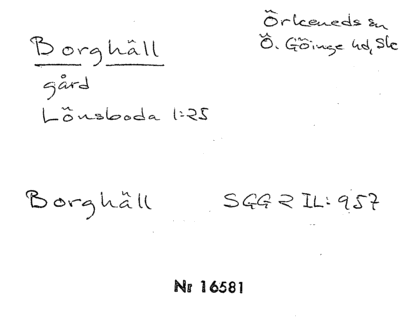 Borghäll
Örkeneds sn
Ö. Göinge hd, Sk
gård
Lönsboda 1:25
Borghäll SGG 2 IL: 957
Nr 16581